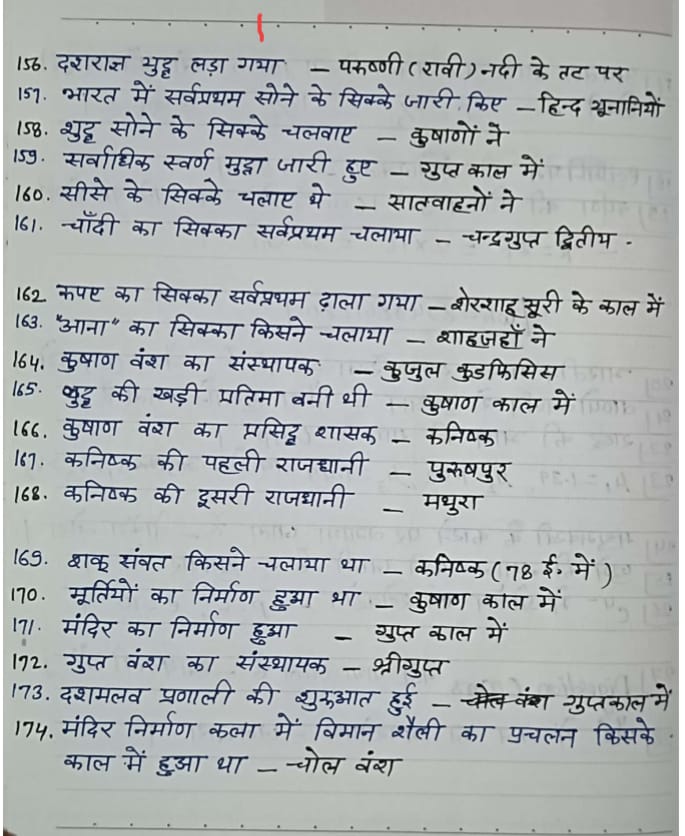 156. दशराज्ञ युद्ध लड़ा गया - परुष्णी (रावी) नदी के तट पर
157. भारत में सर्वप्रथम सोने के सिक्के जारी किए - हिन्द यूनानियों
158. शुद्ध सोने के सिक्के चलवाए - कुषाणों ने
159. सर्वाधिक स्वर्ण मुद्रा जारी हुए - गुप्त काल में
160. सीसे के सिक्के चलाए थे - सातवाहनों ने
161. चाँदी का सिक्का सर्वप्रथम चलाया - चन्द्रगुप्त द्वितीय .
162 रूपए का सिक्का सर्वप्रथम ढाला गया - शेरशाह सूरी के काल में
163. "आना" का सिक्का किसने चलाया - शाहजहाँ ने
164. कुषाण वंश का संस्थापक - कुजुल कुडफिसिस
165. बुद्ध की खड़ी प्रतिमा बनी थी - कुषाण काल में
166. कुषाण वंश का प्रसिद्ध शासक - कनिष्क
167. कनिष्क की पहली राजधानी - पुरुषपुर
168. कनिष्क की दूसरी राजधानी - मथुरा
169. शक संवत किसने चलाया था - कनिष्क (78 ई. में)
170. मूर्तियों का निर्माण हुआ था - कुषाण काल में
171. मंदिर का निर्माण हुआ - गुप्त काल में
172. गुप्त वंश का संस्थायक - श्रीगुप्त
173. दशमलव प्रणाली की शुरुआत हुई - चोल वंश गुप्तकाल में
174. मंदिर निर्माण कला में विमान शैली का प्रचलन किसके
काल में हुआ था - चोल वंश